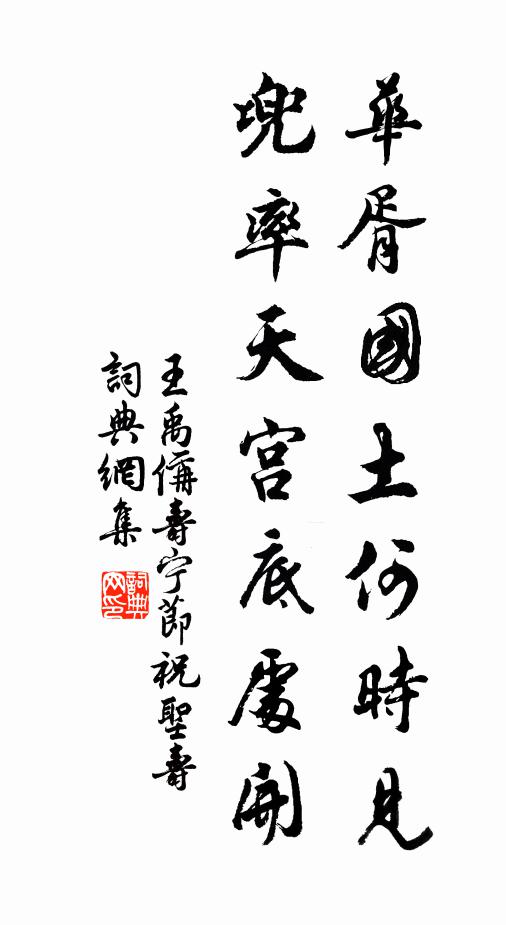 華胥國土何時見
兜率天宮底處開
王禹偁壽宁節祝聖壽
詞典網集
詞典网印